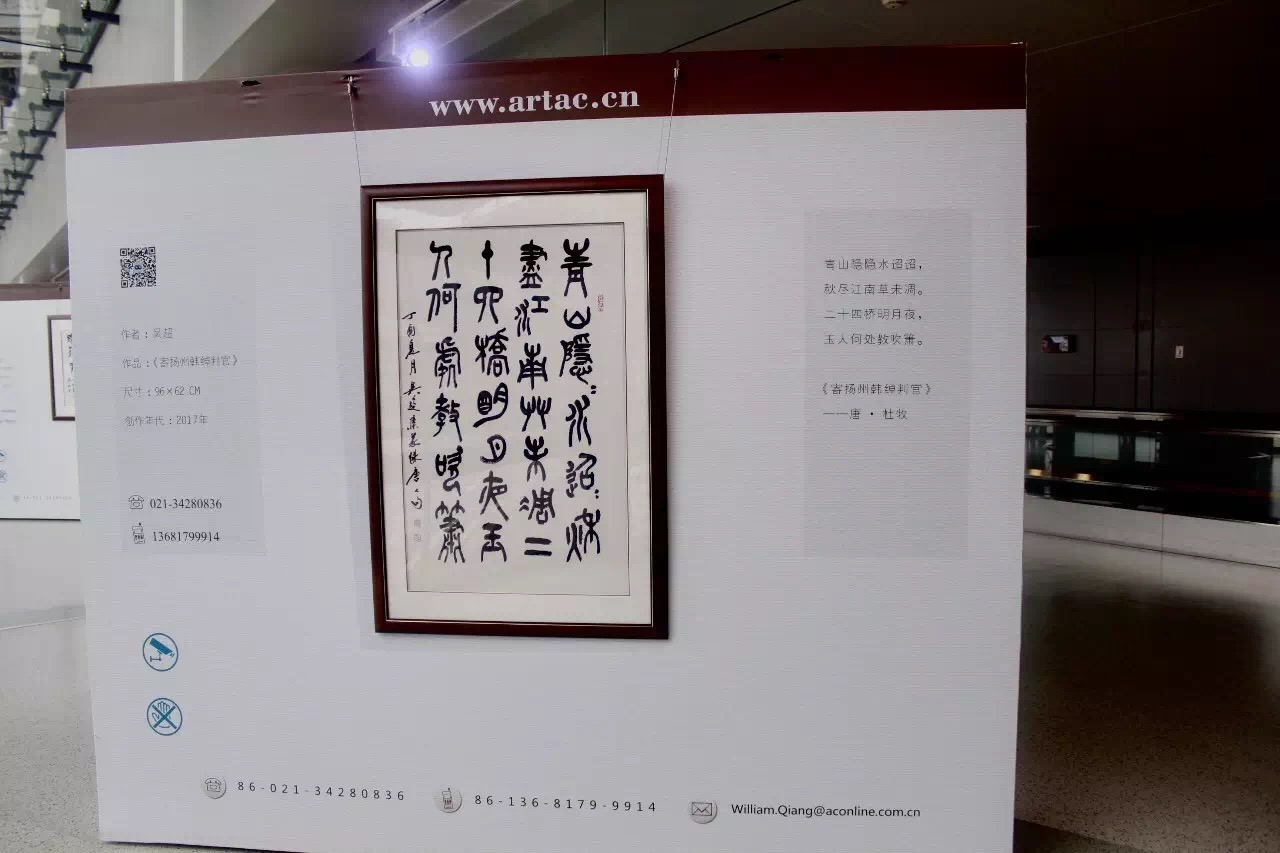 www.artac.cn
作者：吴超
作品：《寄扬州韩绰判官》
尺寸：96×62 CM
创作年代：2017年
021-34280836
13681799914
青山隱〻水迢〻秋
盡江南艸未凋二
十四橋明月夜玉
人何處教吹簫
丁酉夏月吴超
青山隐隐水迢迢，
秋尽江南草未凋。
二十四桥明月夜，
玉人何处教吹箫。
《寄扬州韩绰判官》
——唐 · 杜牧
86-021-34280836
86-136-8179-9914
William.Qiang@aconline.com.cn